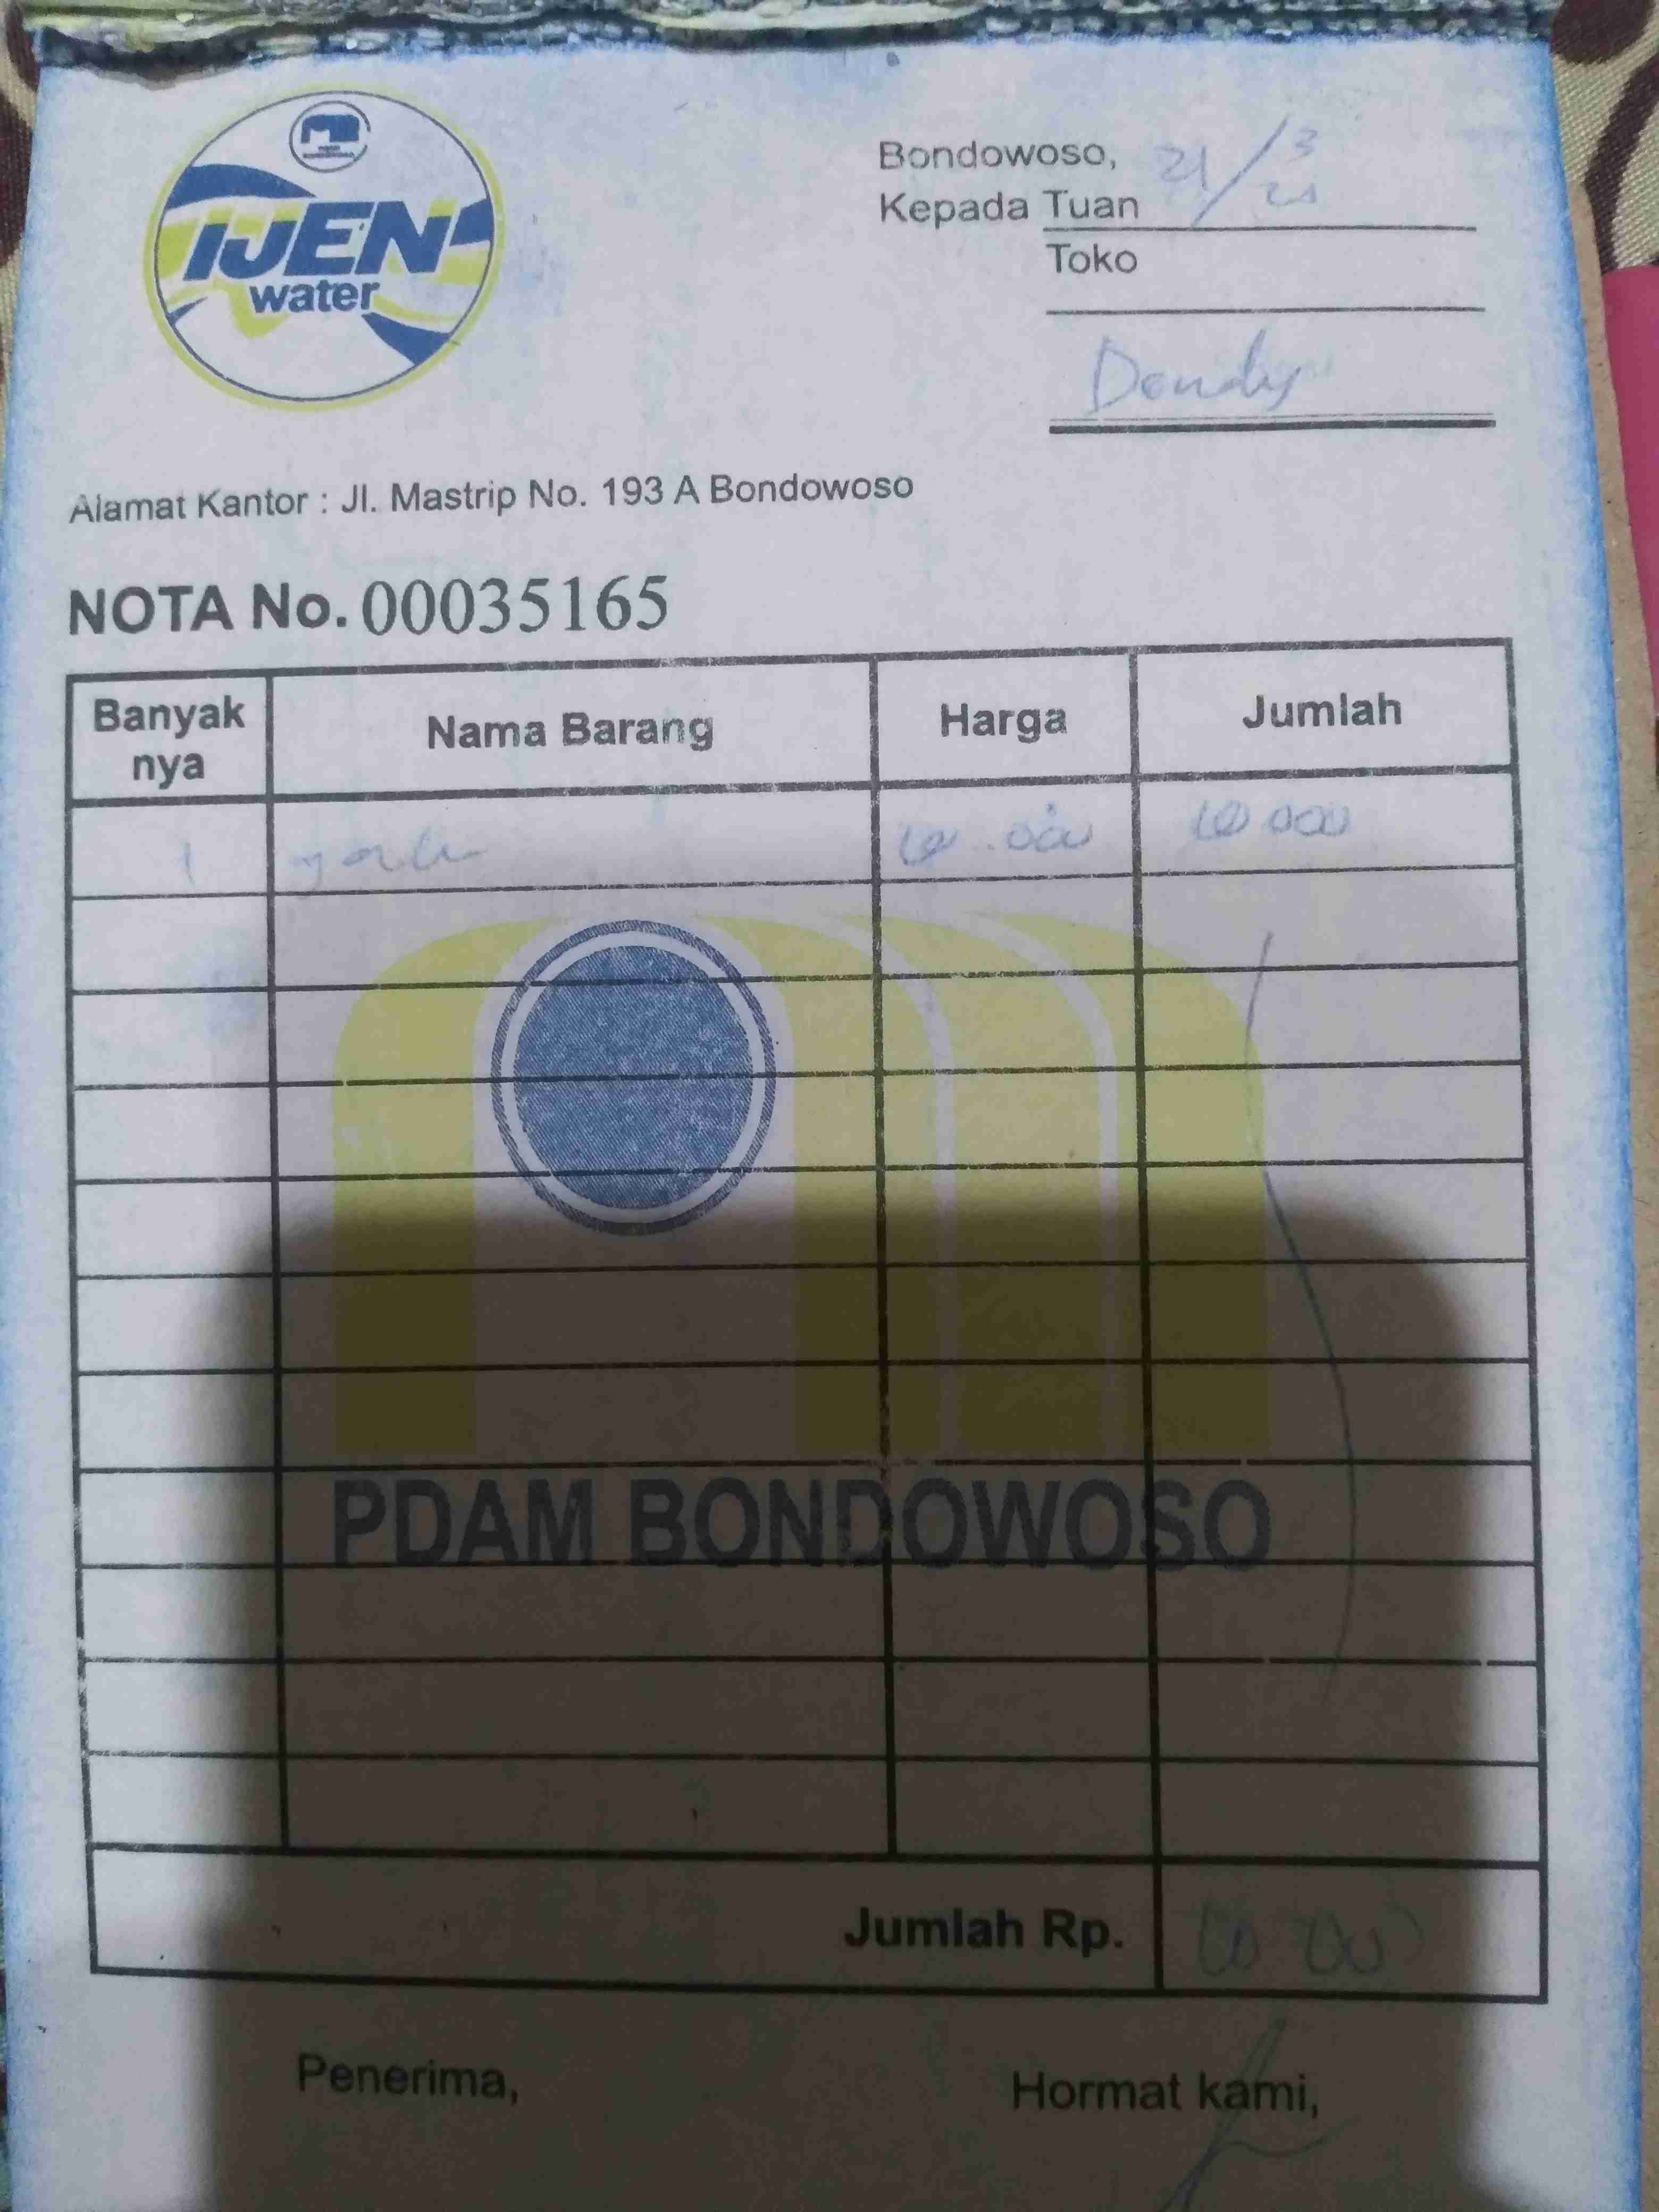 IJEN
water
Bondowoso, 21/3
Kepada Tuan
Toko
Dendy
Alamat Kantor : Jl. Mastrip No. 193 A Bondowoso
NOTA No. 00035165
Banyak nya Nama Barang Harga Jumlah
1
PDAM BONDOWOSO
Jumlah Rp.
Penerima, Hormat kami,